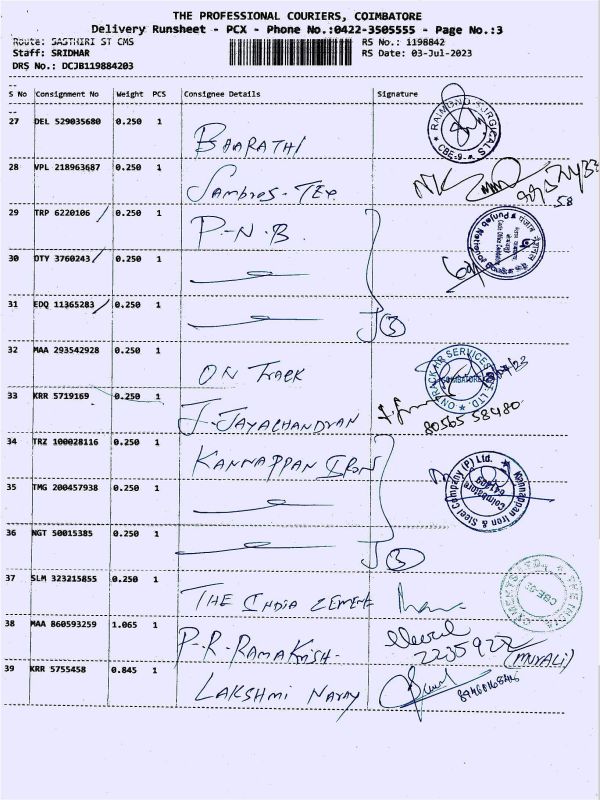 THE PROFESSIONAL COURIERS, COIMBATORE
Delivery Runsheet - PCX - Phone No.:0422-3505555 - Page No.:3
Route: SASTHIRI ST CMS
RS No.: 1198842
Staff: SRIDHAR
RS Date: 03-Jul-2023
DRS No.: DCJB119884203
S No Consignment No Weight PCS Consignee Details Signature
27 DEL 529035680 0.250 1 BAARATHI
RAIMOND SURGICALS CBE-9
28 VPL 218963687 0.250 1 Sambros-Tex
29 TRP 6220106 0.250 1 P-N.B
Punjab National
30 OTY 3760243 0.250 1
31 EDQ 11365283 0.250 1
3
32 MAA 293542928 0.250 1 ON TRACK
ONTRACK AIR SERVICES LTD. COIMBATORE
33 KRR 5719169 0.250 1 J-JAYACHANDRAN
80565 58480
34 TRZ 100028116 0.250 1 KANNAPPAN IRON
Kannappan Iron & Steel Company (P) Ltd. Coimbatore 641009
35 TMG 200457938 0.250 1
36 NGT 50015385 0.250 1
3
37 SLM 323215855 0.250 1 THE INDIA CEMENT
THE INDIA CEMENTS LTD. CBE-02
38 MAA 860593259 1.065 1 P-R-RAMAKRISH-
2235922
(MURALI)
39 KRR 5755458 0.845 1 LAKSHMI NARAY